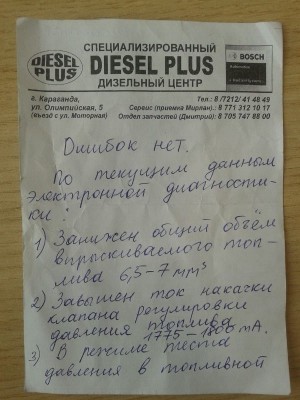 DIESEL
PLUS
СПЕЦИАЛИЗИРОВАННЫЙ
DIESEL PLUS
ДИЗЕЛЬНЫЙ ЦЕНТР
BOSCH
г. Караганда,
ул. Олимпийская, 5
(въезд с ул. Моторная)
Тел.: 8 /7212/ 41 48 49
Сервис (приемка Мирлан).: 8 771 312 10 17
Отдел запчастей (Дмитрий): 8 705 747 88 00
Ошибок нет.
По текущим данным
электронной диагности-
ки:
1) Занижен общий объём
впрыскиваемого топ-
лива 6,5-7 mm³
2) Завышен ток накачки
клапана регулировки
давления топлива
1775-1800 mA.
3) В режиме теста
давления в топливной